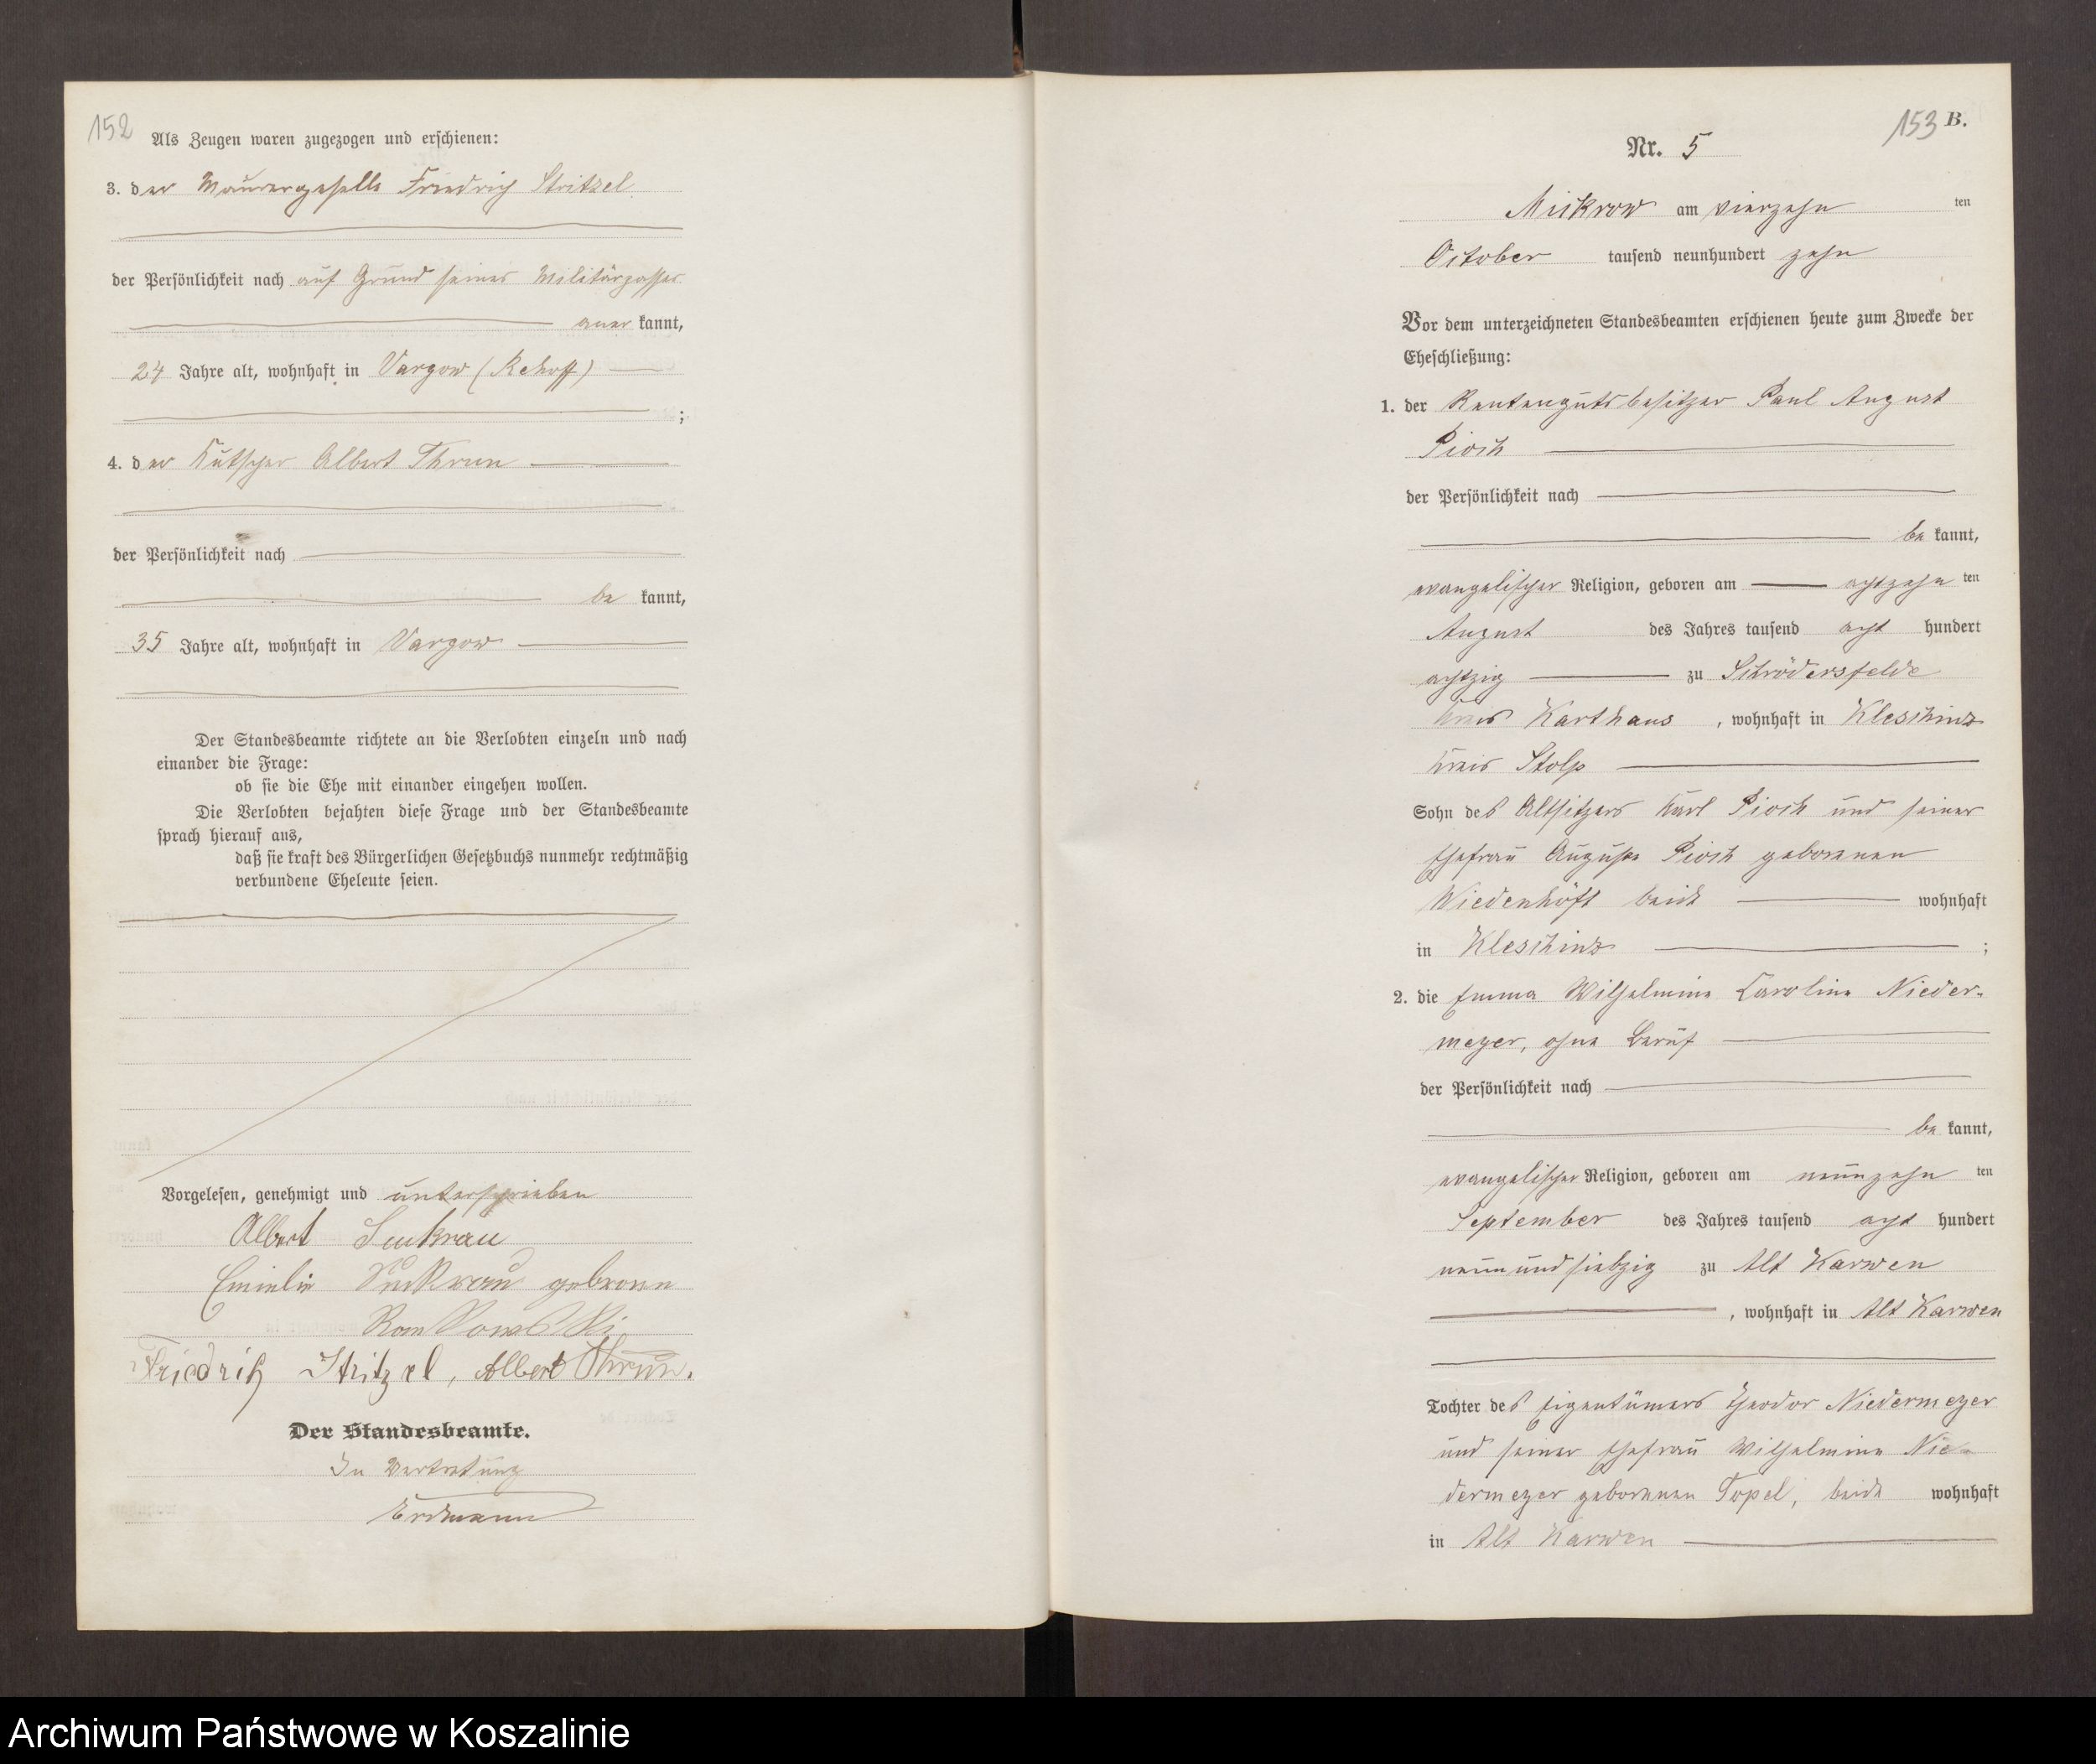 152
Als Zeugen waren zugezogen und erschienen:
3. der Maurergeselle Friedrich Stritzel
der Persönlichkeit nach auf Grund seines Militärpasses
aner kannt,
24 Jahre alt, wohnhaft in Vargow (Rehoff)
;
4. der Kutscher Albert Thrun
der Persönlichkeit nach
be kannt,
35 Jahre alt, wohnhaft in Vargow
Der Standesbeamte richtete an die Verlobten einzeln und nach
einander die Frage:
ob sie die Ehe mit einander eingehen wollen.
Die Verlobten bejahten diese Frage und der Standesbeamte
sprach hierauf aus,
daß sie kraft des Bürgerlichen Gesetzbuchs nunmehr rechtmäßig
verbundene Eheleute seien.
Vorgelesen, genehmigt und unterschrieben
Albert Suckrau
Emilie Suckrau geborene
Friedrich Stritzel, Albert Thrun.
Der Standesbeamte.
In Vertretung
Erdmann
153 B.
Nr. 5
Mickrow am vierzehn ten
October tausend neunhundert zehn
Vor dem unterzeichneten Standesbeamten erschienen heute zum Zwecke der
Eheschließung:
1. der Rentengutsbesitzer Paul August
Pioch
der Persönlichkeit nach
be kannt,
evangelischer Religion, geboren am achtzehn ten
August des Jahres tausend acht hundert
achtzig zu Schrödersfelde
Kreis Karthaus, wohnhaft in Kleschinz
Kreis Stolp
Sohn des Altsitzers Karl Pioch und seiner
Ehefrau Auguste Pioch geborenen
Wiedenhöft beide wohnhaft
in Kleschinz ;
2. die Emma Wilhelmine Caroline Nieder-
meyer, ohne Beruf
der Persönlichkeit nach
be kannt,
evangelischer Religion, geboren am neunzehn ten
September des Jahres tausend acht hundert
neunundsiebzig zu Alt Karwen
, wohnhaft in Alt Karwen
Tochter des Eigentümers Theodor Niedermeyer
und seiner Ehefrau Wilhelmine Nie-
dermeyer geborenen Topel, beide wohnhaft
in Alt Karwen
Archiwum Państwowe w Koszalinie